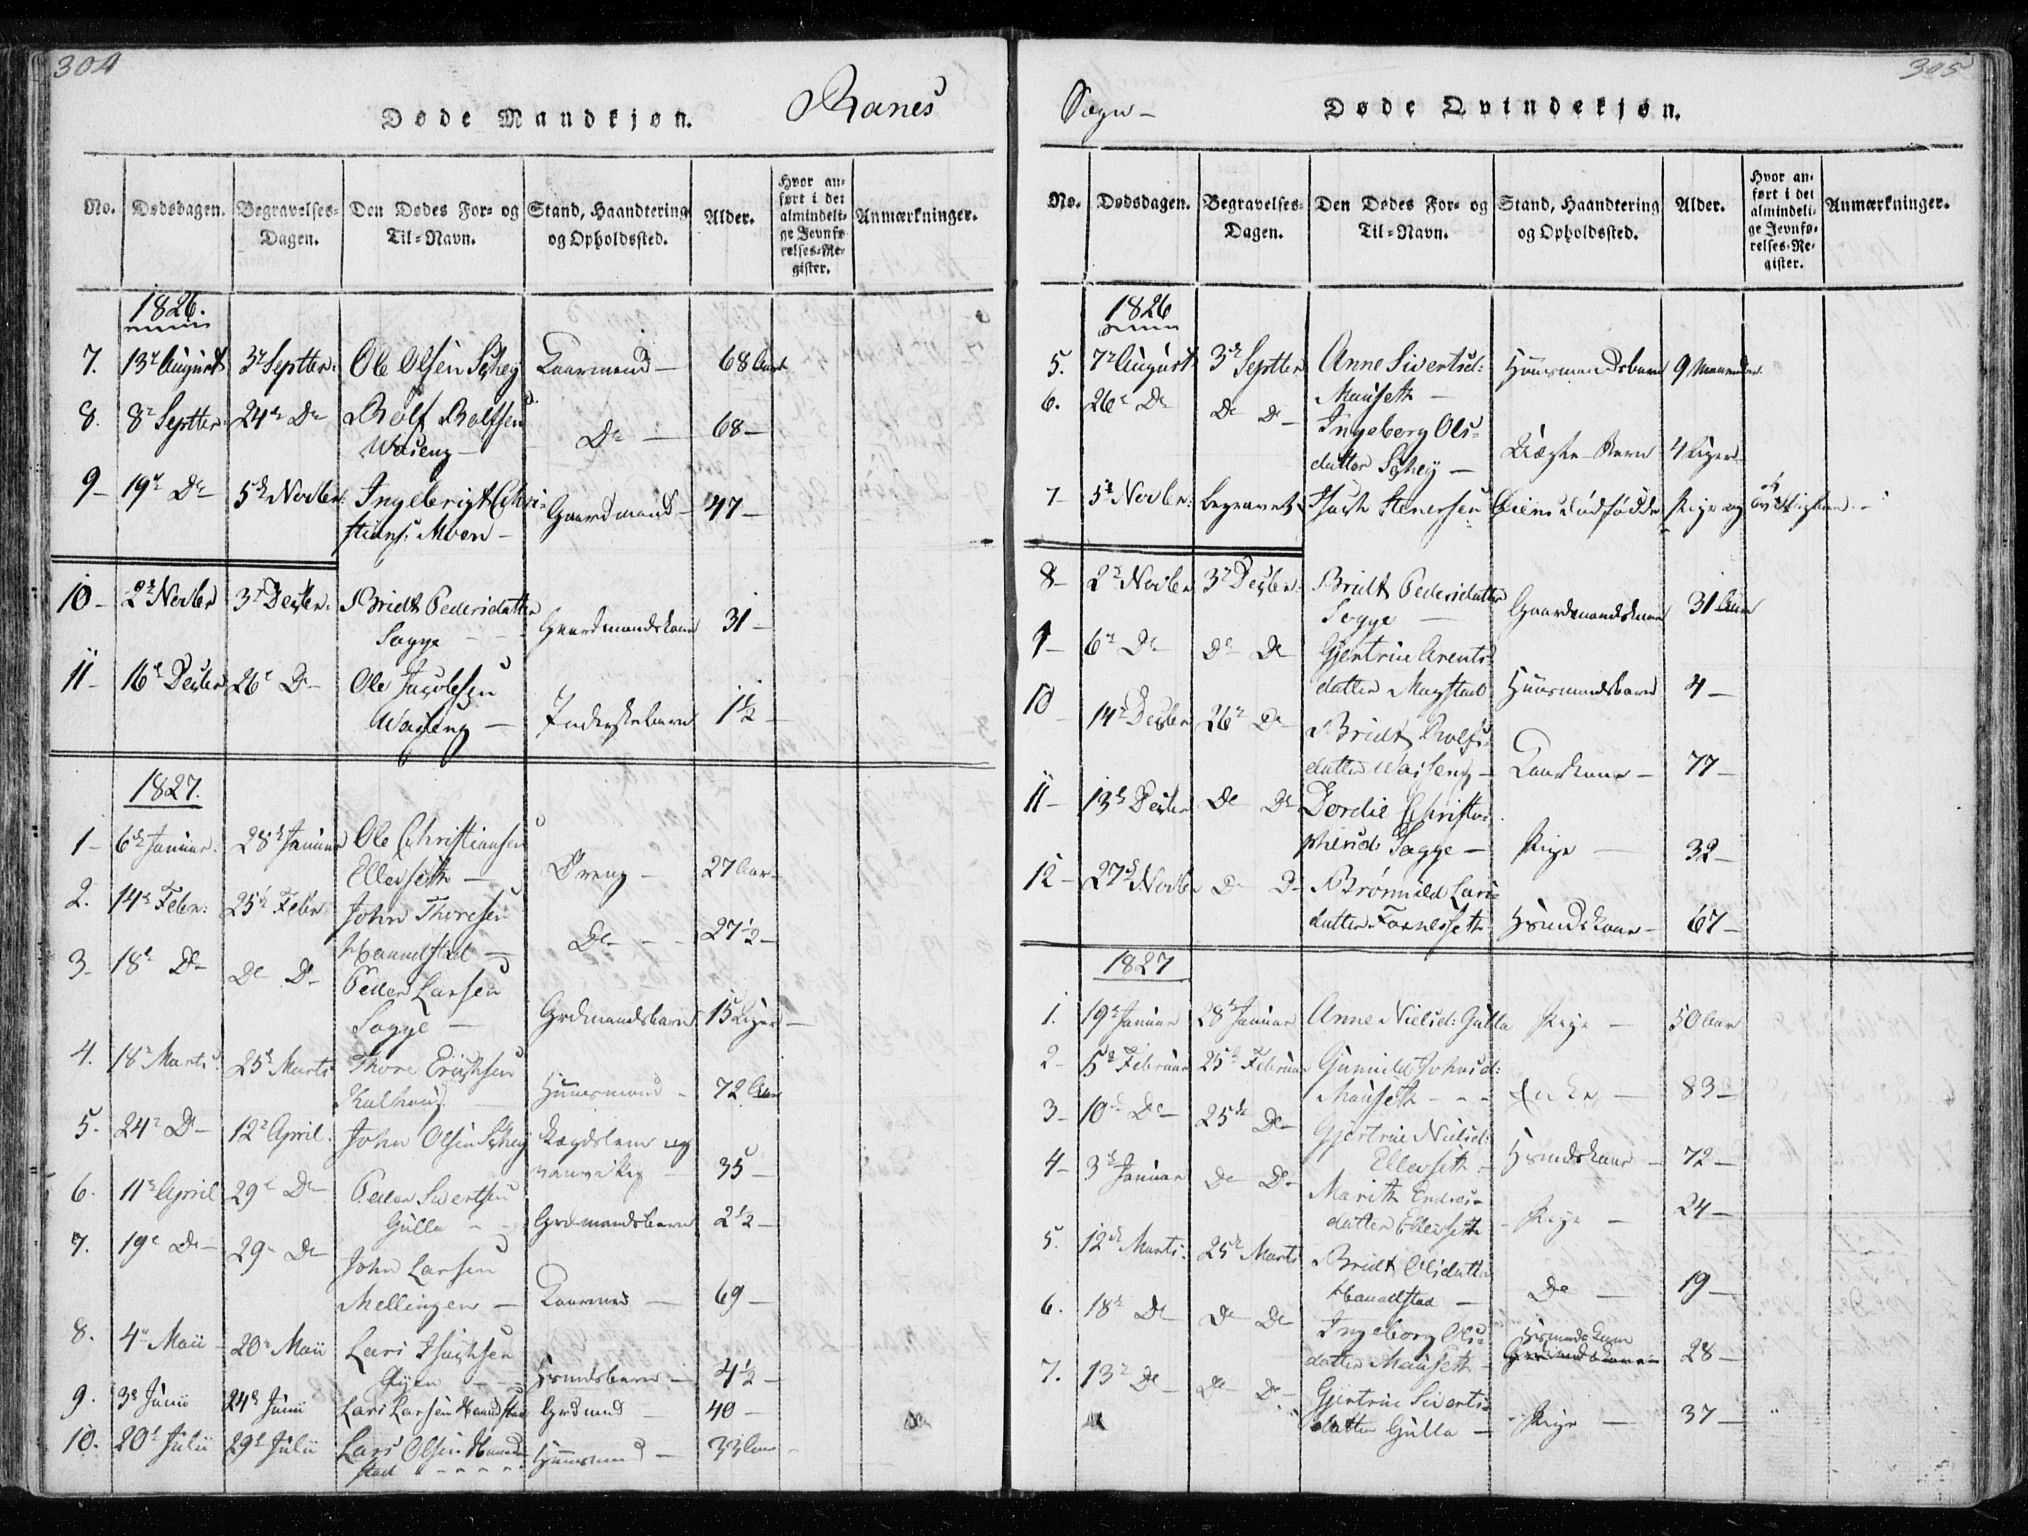 304
Døde Mandkjøn.
Ranes
No.
Dødsdagen.
Begravelses-
Dagen.
Den Dødes For- og
Til-Navn.
Stand, Haandtering
og Opholdssted.
Alder.
Hvor an-
ført i det
almindeli-
ge Jevnfø-
relses-Re-
gister.
Anmærkninger.
1826.
7. 13de August 3de Septbr: Ole Olsen Schey Kaarmand — 68 Aar
8. 8de Septbr: 24de Do Rolf Rolfsen
Waseng — Do — 68 —
9 — 19de Do 5te Novbr: Ingebrigt Chri-
stians: Moen — Gaardmand — 47 —
10 — 2de Novbr 3de Decbr: Bridt Pedersdatter
Sogge Gaardmandskone 31 —
11 — 16de Decbr 26de Do Ole Jacobsen
Waseng — Inderstebarn 1½ —
1827.
1 — 6te Januar. 28de Januar Ole Christiansen
Ellerseth — Dreng — 27 Aar —
2. 14de Febr: 25de Febr: John Thoresen
Haandstad — Do 27½ —
3 — 18de Do Do Do Peder Larsen
Sogge — Grdmandsbarn 15 Uger —
4. 18de Marts: 25de Marts Thore Erichsen
Kulhaug Huusmand — 72 Aar
5. 24de Do 12te April. John Olsen Schey Lægdslem og
vanvittig 35 —
6. 11te April 29de Do Peder Sivertsen
Gulla Grdmandsbarn 2½ —
7. 19de Do 29de Do John Larsen
Mellingen — Kaarmand — 69 —
8. 4de Maii 20de Maii Lars Isachsen
Øyen Hsmdsbarn — 4½ —
9. 3de Junii 24de Junii Lars Larsen Haandstad Grdmand — 40 —
10. 20de Julii 29de Julii Lars Olsen Haand-
stad Huusmand — 33 Aar
305
Sogn —
Døde Qvindekjøn.
No.
Dødsdagen.
Begravelses-
Dagen.
Den Dødes For- og
Til-Navn.
Stand, Haandtering
og Opholdssted.
Alder.
Hvor an-
ført i det
almindeli-
ge Jevnfø-
relses-Re-
gister.
Anmærkninger.
1826
5. 7de August 3de Septbr Anne Sivertsd:
Mauseth — Huusmandsbarn 9 Maaneder
6. 26de Do Do Do Ingeborg Ols-
datter Schey — Uægte Barn 4 Uger
7 5te Novbr: begravet Isach Stenersen Øiens dødfødde Pige og
8 — 2de Novbr 3de Decbr: Bridt Pedersdatter
Sogge — Gaardmandskone 31 Aar
9 — 6te Do Do Do Gjertrue Arents-
datter Magstad Huusmandsbarn 4 —
10 14de Decbr 26de Do Bridt Rolfs-
datter Waseng — Kaarkone — 77 —
11 — 13de Decbr Do Do Dordie Christo-
phersd: Sogge — Pige — 32 —
12 — 27de Novbr Do Do Brønnild Lars-
datter Fornesseth Hsmdskone — 67 —
1827
1. 19de Januar 28de Januar Anne Nielsd: Gulla Pige — 50 Aar
2 — 5te Februar 25de Februar Gunnild Johnsd:
Mauseth Enke — 83 —
3 — 10de Do 25de Do Gjertrue Nielsd:
Ellerseth — Hsmdskone — 72 —
4 — 3de Januar Do Do Marith Endres-
datter Ellerseth Pige — 24 —
5. 12te Marts: 25de Marts Bridt Olsdatter
Haandstad — Do — 19 —
6. 18de Do Do Do Ingeborg Ols-
datter Mauseth — Hsmandskone 28 —
7. 13de Do Do Do Gjertrue Siverts-
datter Gulla — Pige — 37 —